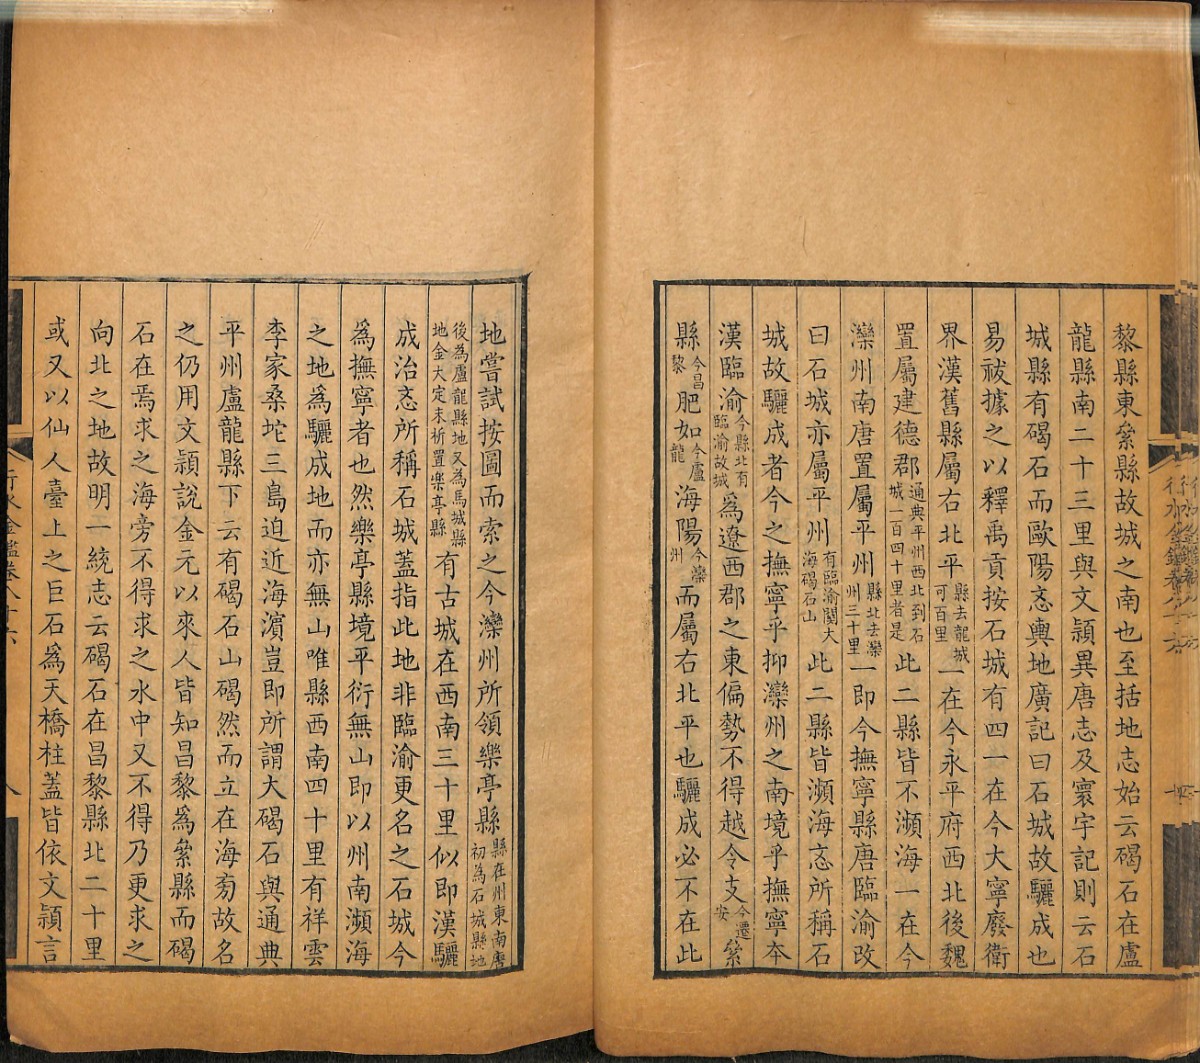 黎縣東絫縣故城之南也至括地志始云碣石在盧
龍縣南二十三里與文穎異唐志及寰宇記則云石
城縣有碣石而歐陽忞輿地廣記曰石城故驪成也
易祓據之以釋禹貢按石城有四一在今大寧廢衛
界漢舊縣屬右北平縣去龍城可百里一在今永平府西北後魏
置屬建德郡通典平州西北到石城一百四十里者是此二縣皆不瀕海一在今
灤州南唐置屬平州縣北去灤州三十里一即今撫寧縣唐臨渝改
曰石城亦屬平州有臨渝關大海碣石山此二縣皆瀕海忞所稱石
城故驪成者今之撫寧乎抑灤州之南境乎撫寧本
漢臨渝今縣北有臨渝故城為遼西郡之東偏勢不得越令支今遷安絫
縣今昌黎肥如今盧龍海陽今灤州而屬右北平也驪成必不在此
地嘗試按圖而索之今灤州所領樂亭縣縣在州東南唐初為石城縣地
後為盧龍縣地又為馬城縣地金大定末析置樂亭縣有古城在西南三十里似即漢驪
成治忞所稱石城蓋指此地非臨渝更名之石城今
為撫寧者也然樂亭縣境平衍無山即以州南瀕海
之地為驪成地而亦無山唯縣西南四十里有祥雲
李家桑坨三島迫近海濱豈即所謂大碣石與通典
平州盧龍縣下云有碣石山碣然而立在海旁故名
之仍用文穎說金元以來人皆知昌黎為絫縣而碣
石在焉求之海旁不得求之水中又不得乃更求之
向北之地故明一統志云碣石在昌黎縣北二十里
或又以仙人臺上之巨石為天橋柱蓋皆依文穎言
行水金鑑卷八十六
八